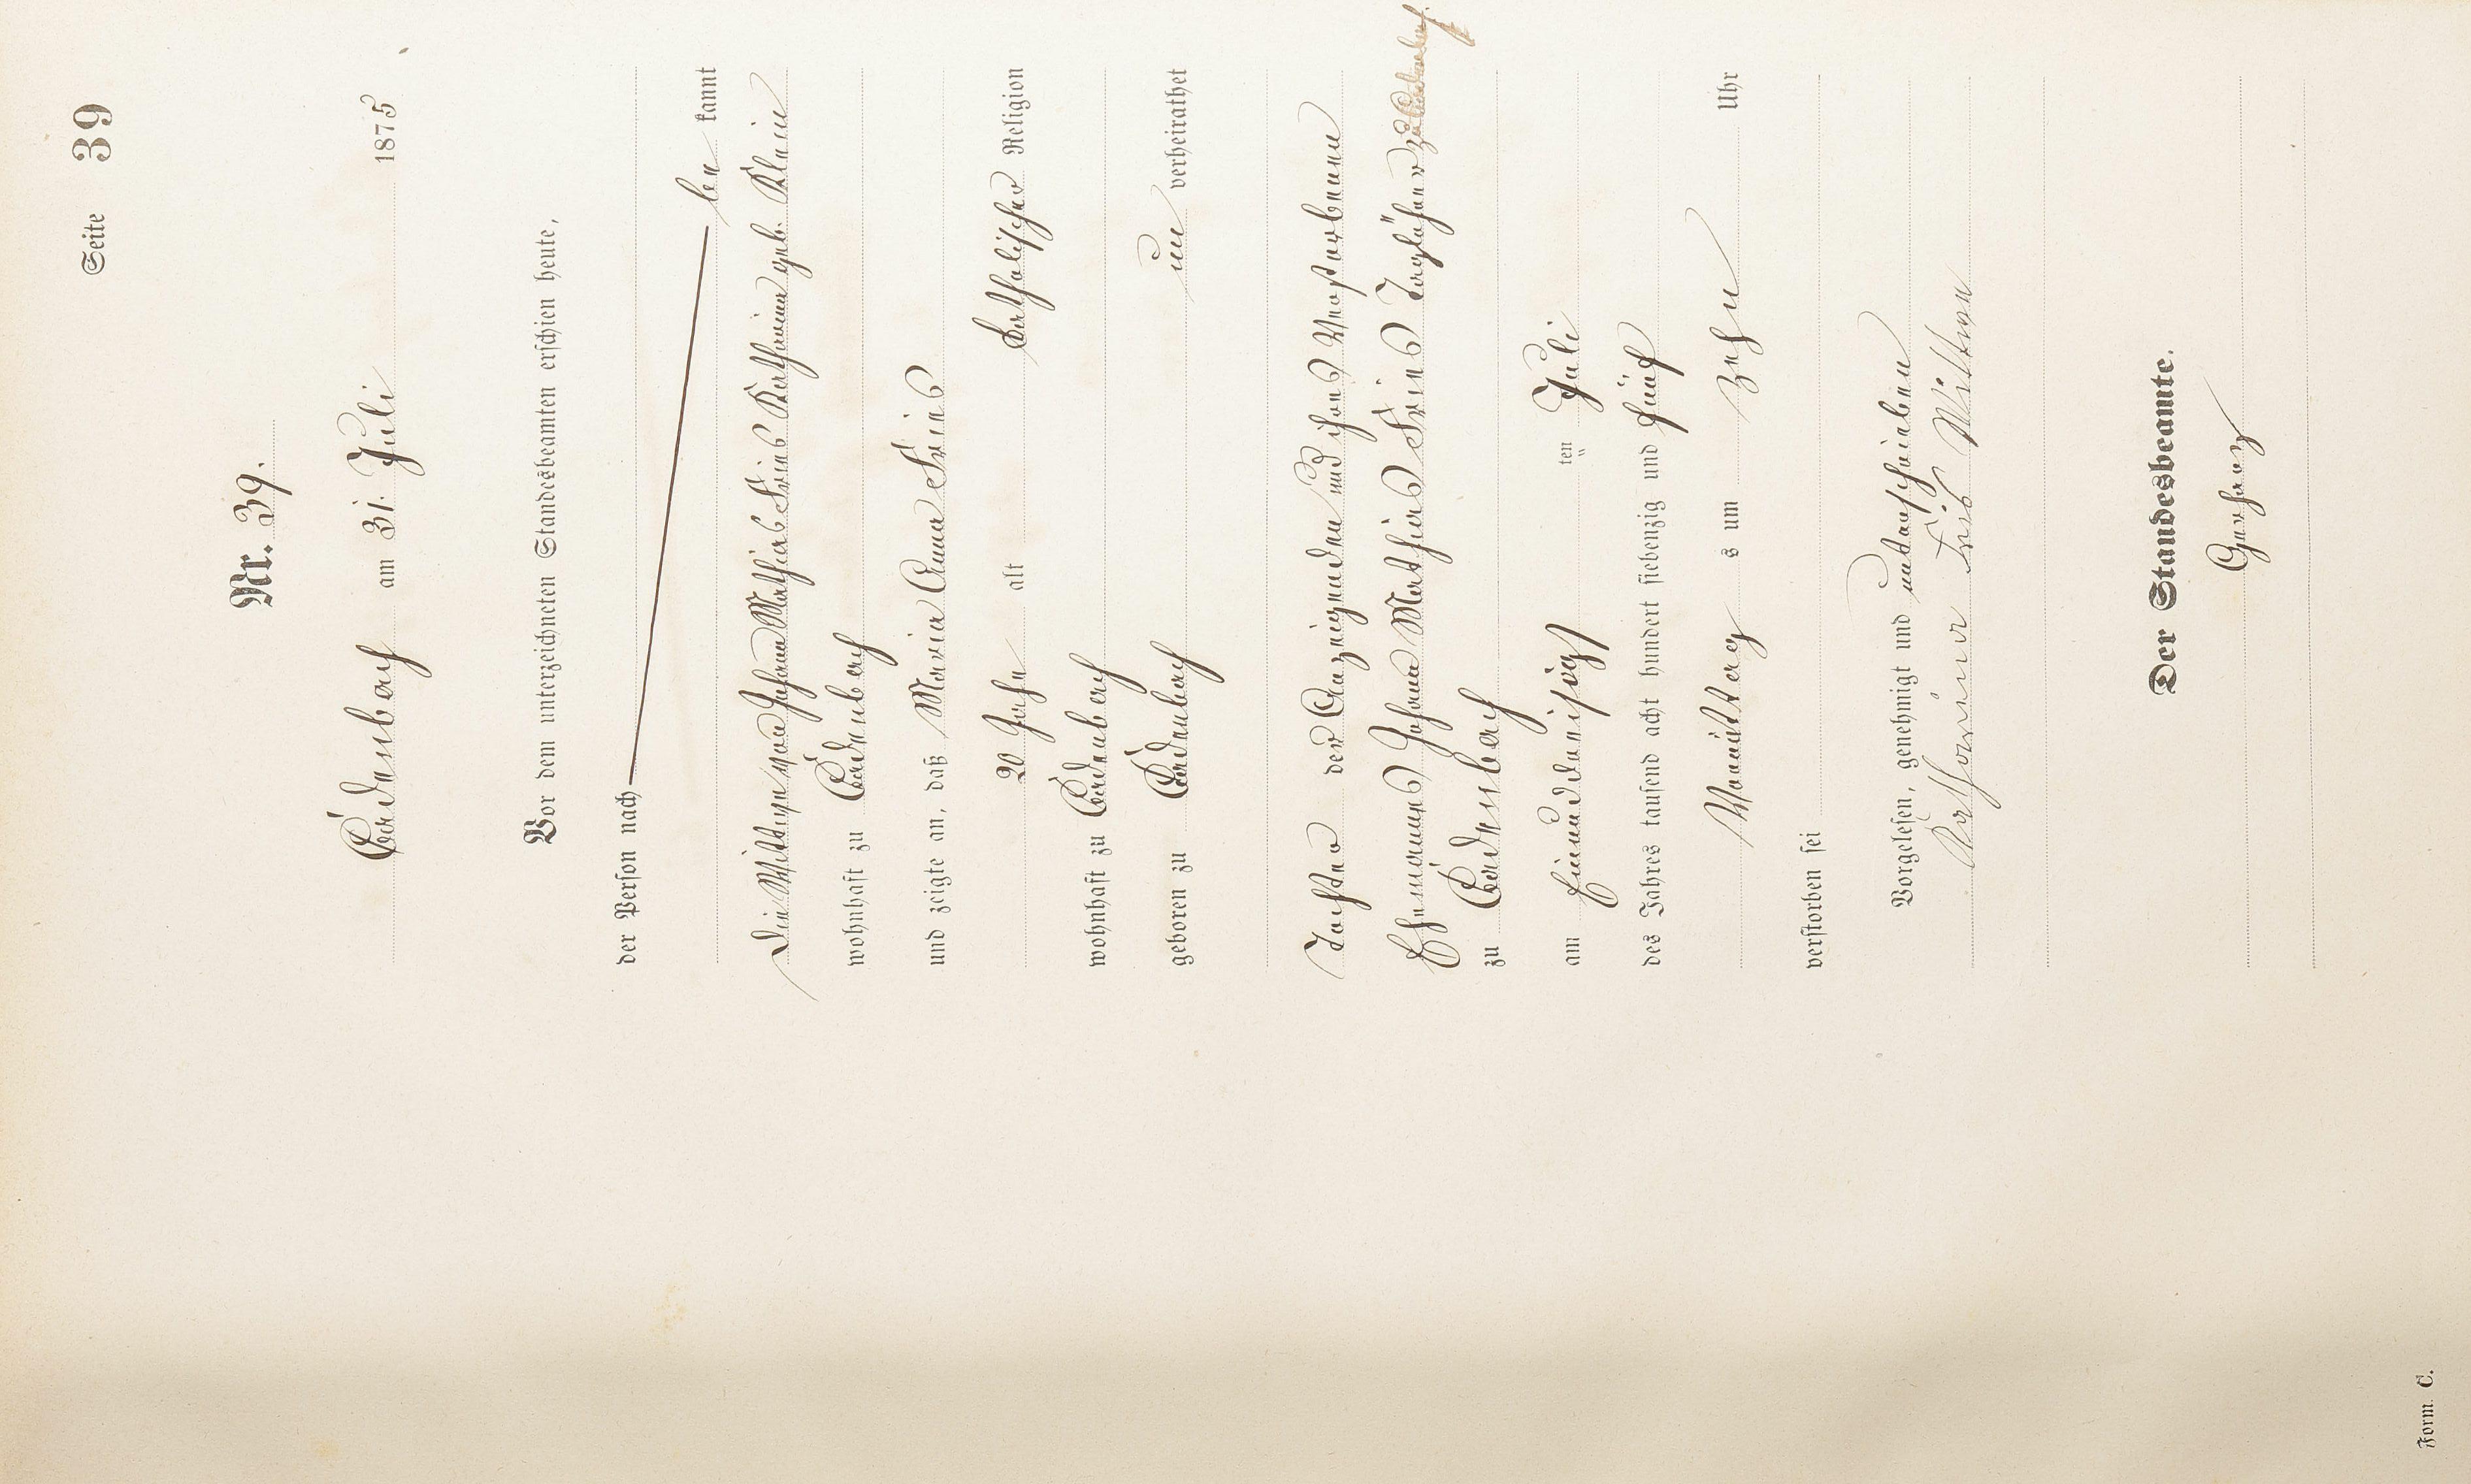 Seite 39
Nr. 39.
Cadenbach am 31. Juli 1875
Vor dem unterzeichneten Standesbeamten erschien heute,
der Person nach
be kannt
die Wittwe von Johann Mathias Fries Katharina geb. Klein
wohnhaft zu Cadenbach
und zeigte an, daß Maria Anna Fries
20 Jahr alt katholischer Religion
wohnhaft zu Cadenbach
geboren zu Cadenbach un verheirathet
Tochter der Anzeigenden und ihres verstorbenen
Ehemannes Johann Mathias Fries Taglöhner zu Cadenbach
zu Cadenbach
am einunddreisigst ten Juli
des Jahres tausend acht hundert siebenzig und fünf
Vormittag s um zehn Uhr
verstorben sei
Vorgelesen, genehmigt und unterschrieben
Katharina Fries Wittwe
Der Standesbeamte.
Gerharz
Form. C.